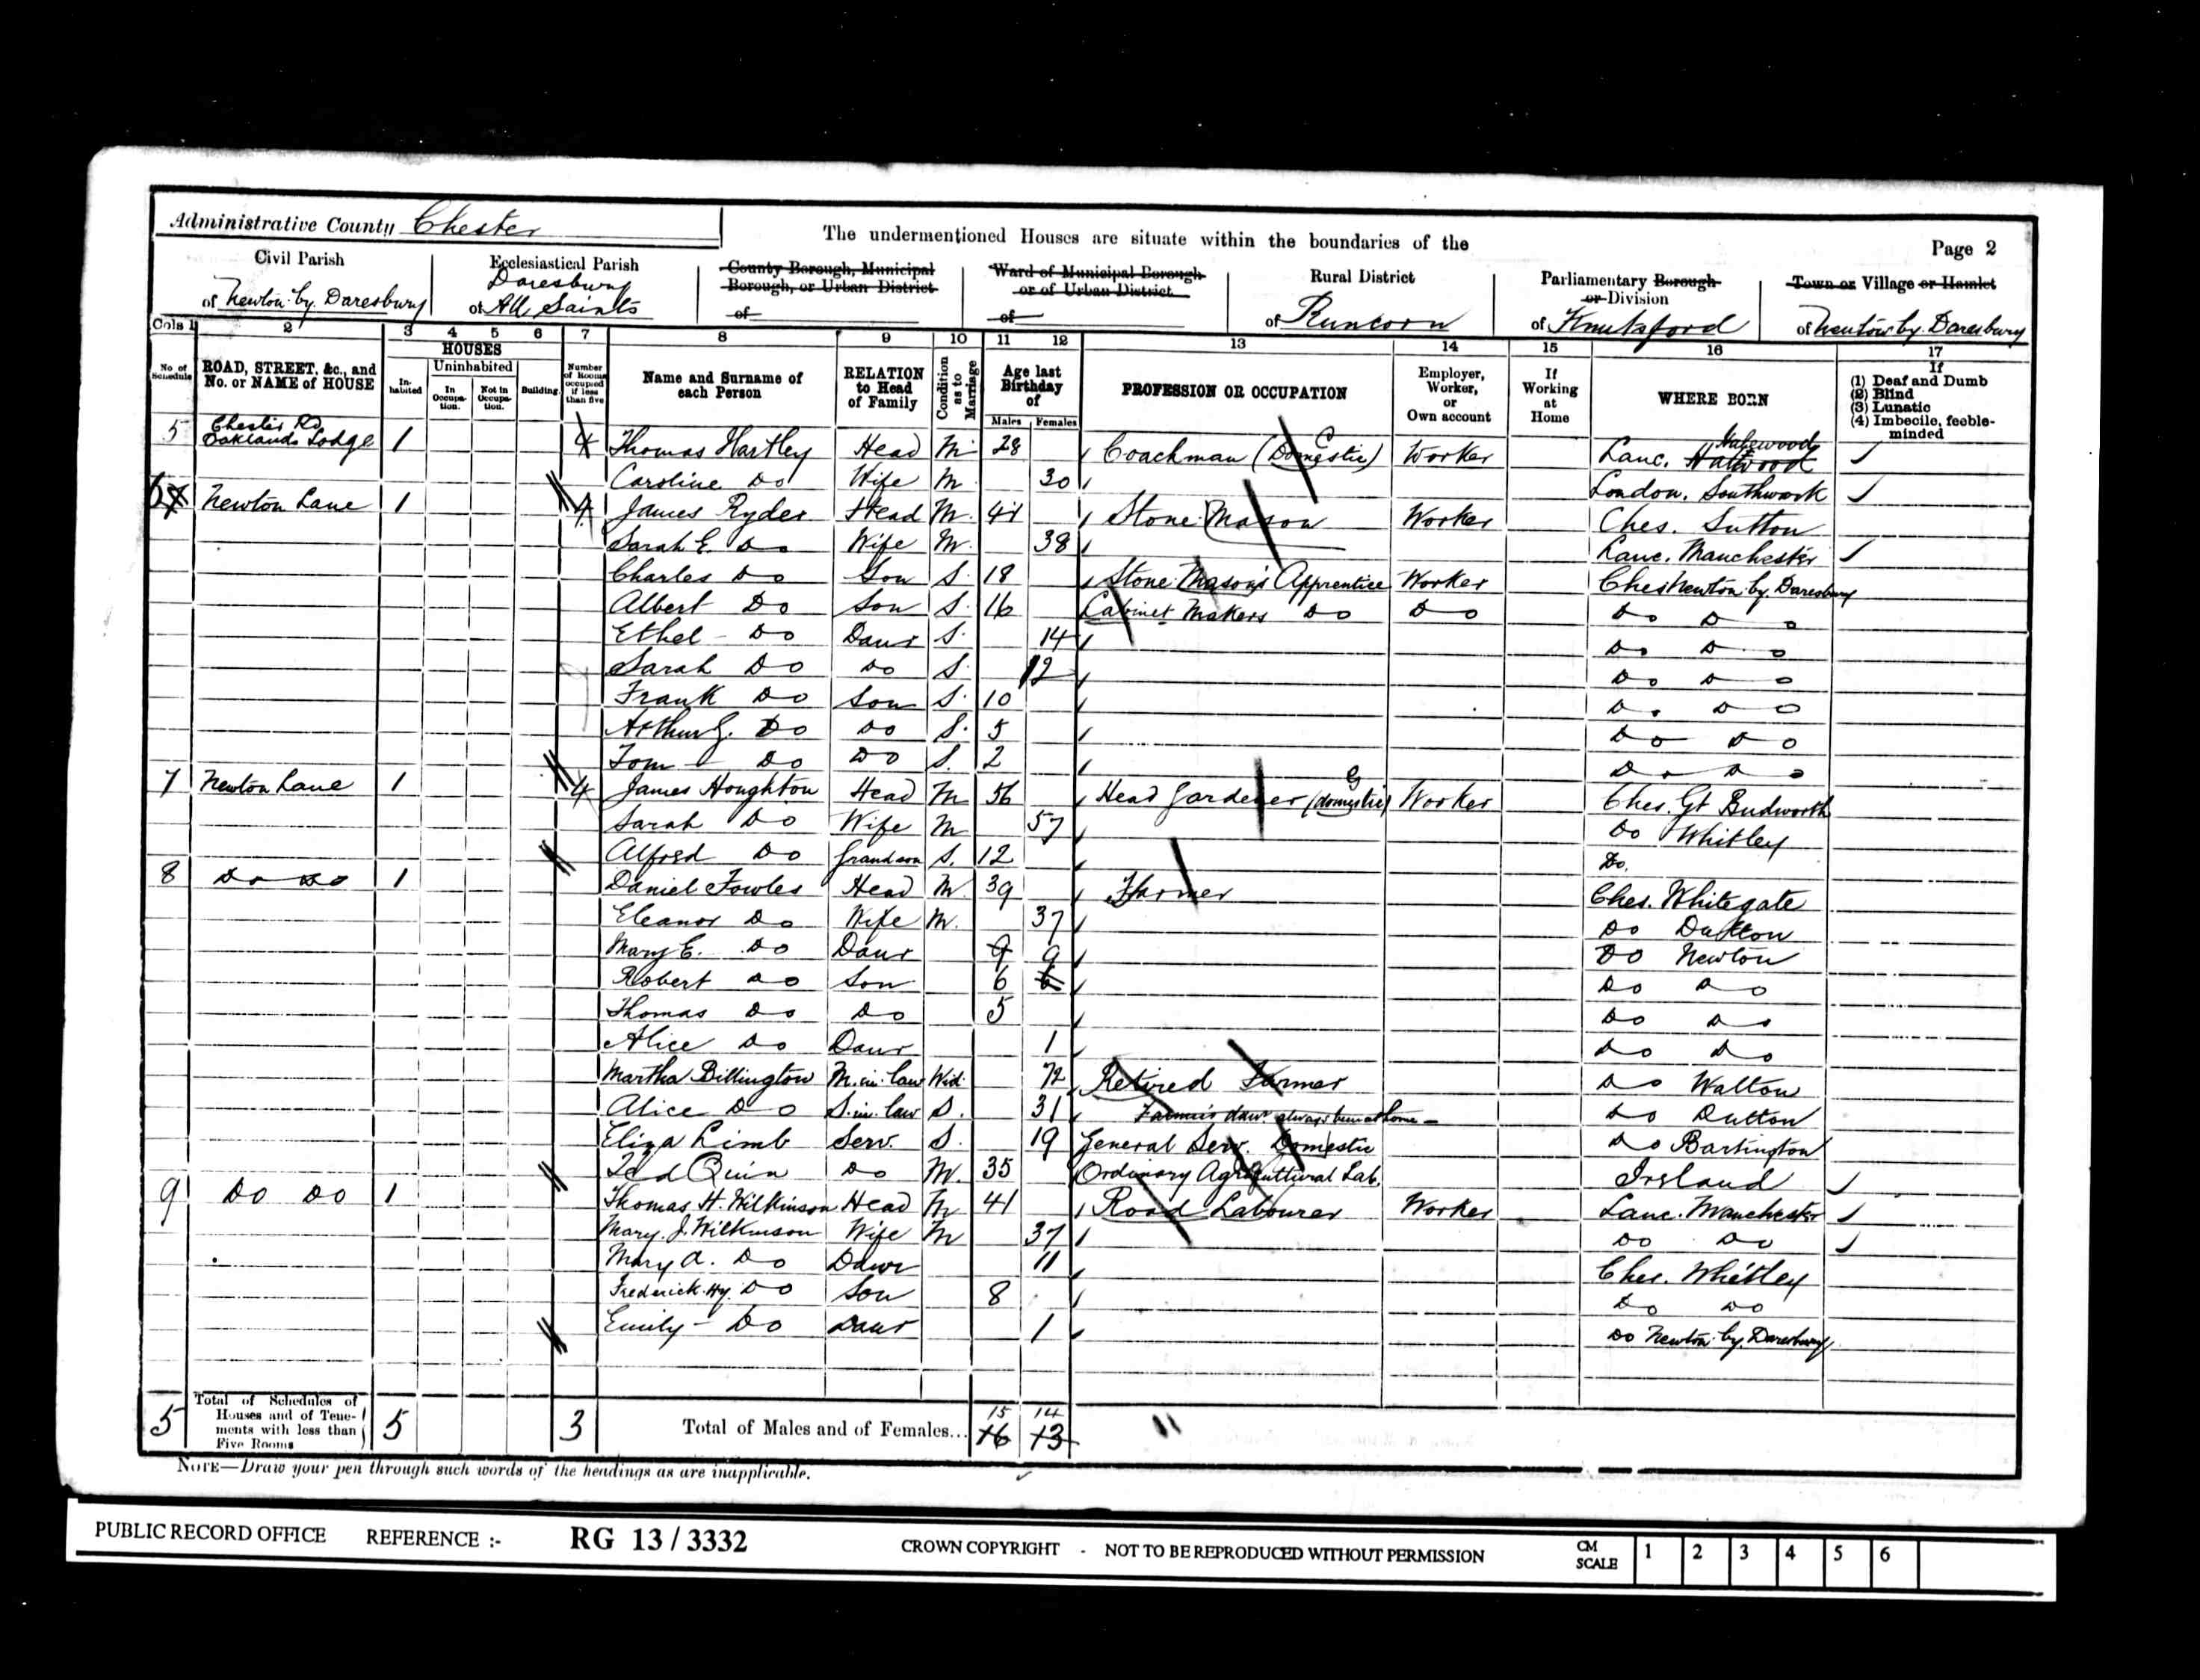 Administrative County Chester
The undermentioned Houses are situate within the boundaries of the
Page 2
Civil Parish
of Newton-by-Daresbury
Ecclesiastical Parish
Daresbury
of All Saints
County Borough, Municipal
Borough, or Urban District
of
Ward of Municipal Borough
or of Urban District
of
Rural District
of Runcorn
Parliamentary Borough
or Division
of Knutsford
Town or Village or Hamlet
of Newton by Daresbury
Cols 1 2 3 4 5 6 7 8 9 10 11 12 13 14 15 16 17
No of Schedule
ROAD, STREET, &c., and No. or NAME of HOUSE
HOUSES
Inhabited
Uninhabited
In Occupation.
Not in Occupation.
Building
Number of Rooms occupied if less than five
Name and Surname of each Person
RELATION to Head of Family
Condition as to Marriage
Age last Birthday of
Males Females
PROFESSION OR OCCUPATION
Employer, Worker, or Own account
If Working at Home
WHERE BORN
If
(1) Deaf and Dumb
(2) Blind
(3) Lunatic
(4) Imbecile, feeble-minded
5 Chester Rd Oaklands Lodge 1 4 Thomas Hartley Head M 28 Coachman (Domestic) Worker Lanc. Halewood
Caroline Do Wife M 30 London. Southwark
6 Newton Lane 1 4 James Ryder Head M. 41 Stone Mason Worker Ches. Sutton
Sarah E. Do Wife M. 38 Lanc. Manchester
Charles Do Son S. 18 Stone Mason's Apprentice Worker Ches Newton-by-Daresbury
Albert Do Son S. 16 Cabinet Makers Do Do Do Do
Ethel Do Daur S. 14 Do Do
Sarah Do Do S. 12 Do Do
Frank Do Son S. 10 Do Do
Arthur G. Do Do S. 5 Do Do
Tom Do Do S. 2 Do Do
7 Newton Lane 1 4 James Houghton Head M 56 Head Gardener (domestic) Worker Ches. Gt Budworth
Sarah Do Wife M 57 Do Whitley
Alfred Do Grandson S. 12 Do.
8 Do Do 1 Daniel Fowles Head M. 39 Farmer Ches. Whitegate
Eleanor Do Wife M. 37 Do Dutton
Mary E. Do Daur 9 9 Do Newton
Robert Do Son 6 6 Do Do
Thomas Do Do 5 Do Do
Alice Do Daur 1 Do Do
Martha Billington M. in. law Wid. 72 Retired Farmer Do Walton
Alice Do S. in. law S. 31 Farmer's daur always been at home Do Dutton
Eliza Limb Serv. S. 19 General Serv. Domestic Do Bartington
Ted Quin Do M. 35 Ordinary Agricultural Lab. Ireland
9 Do Do 1 Thomas H. Wilkinson Head M 41 Road Labourer Worker Lanc. Manchester
Mary. J. Wilkinson Wife M 37 Do Do
Mary A. Do Daur 11 Ches. Whitley
Frederick. Hy. Do Son 8 Do Do
Emily Do Daur 1 Do Newton-by-Daresbury
5 Total of Schedules of Houses and of Tenements with less than Five Rooms 5 3 Total of Males and of Females... 15 14
16 13
NOTE—Draw your pen through such words of the headings as are inapplicable.
PUBLIC RECORD OFFICE REFERENCE :- RG 13 / 3332 CROWN COPYRIGHT - NOT TO BE REPRODUCED WITHOUT PERMISSION CM SCALE 1 2 3 4 5 6